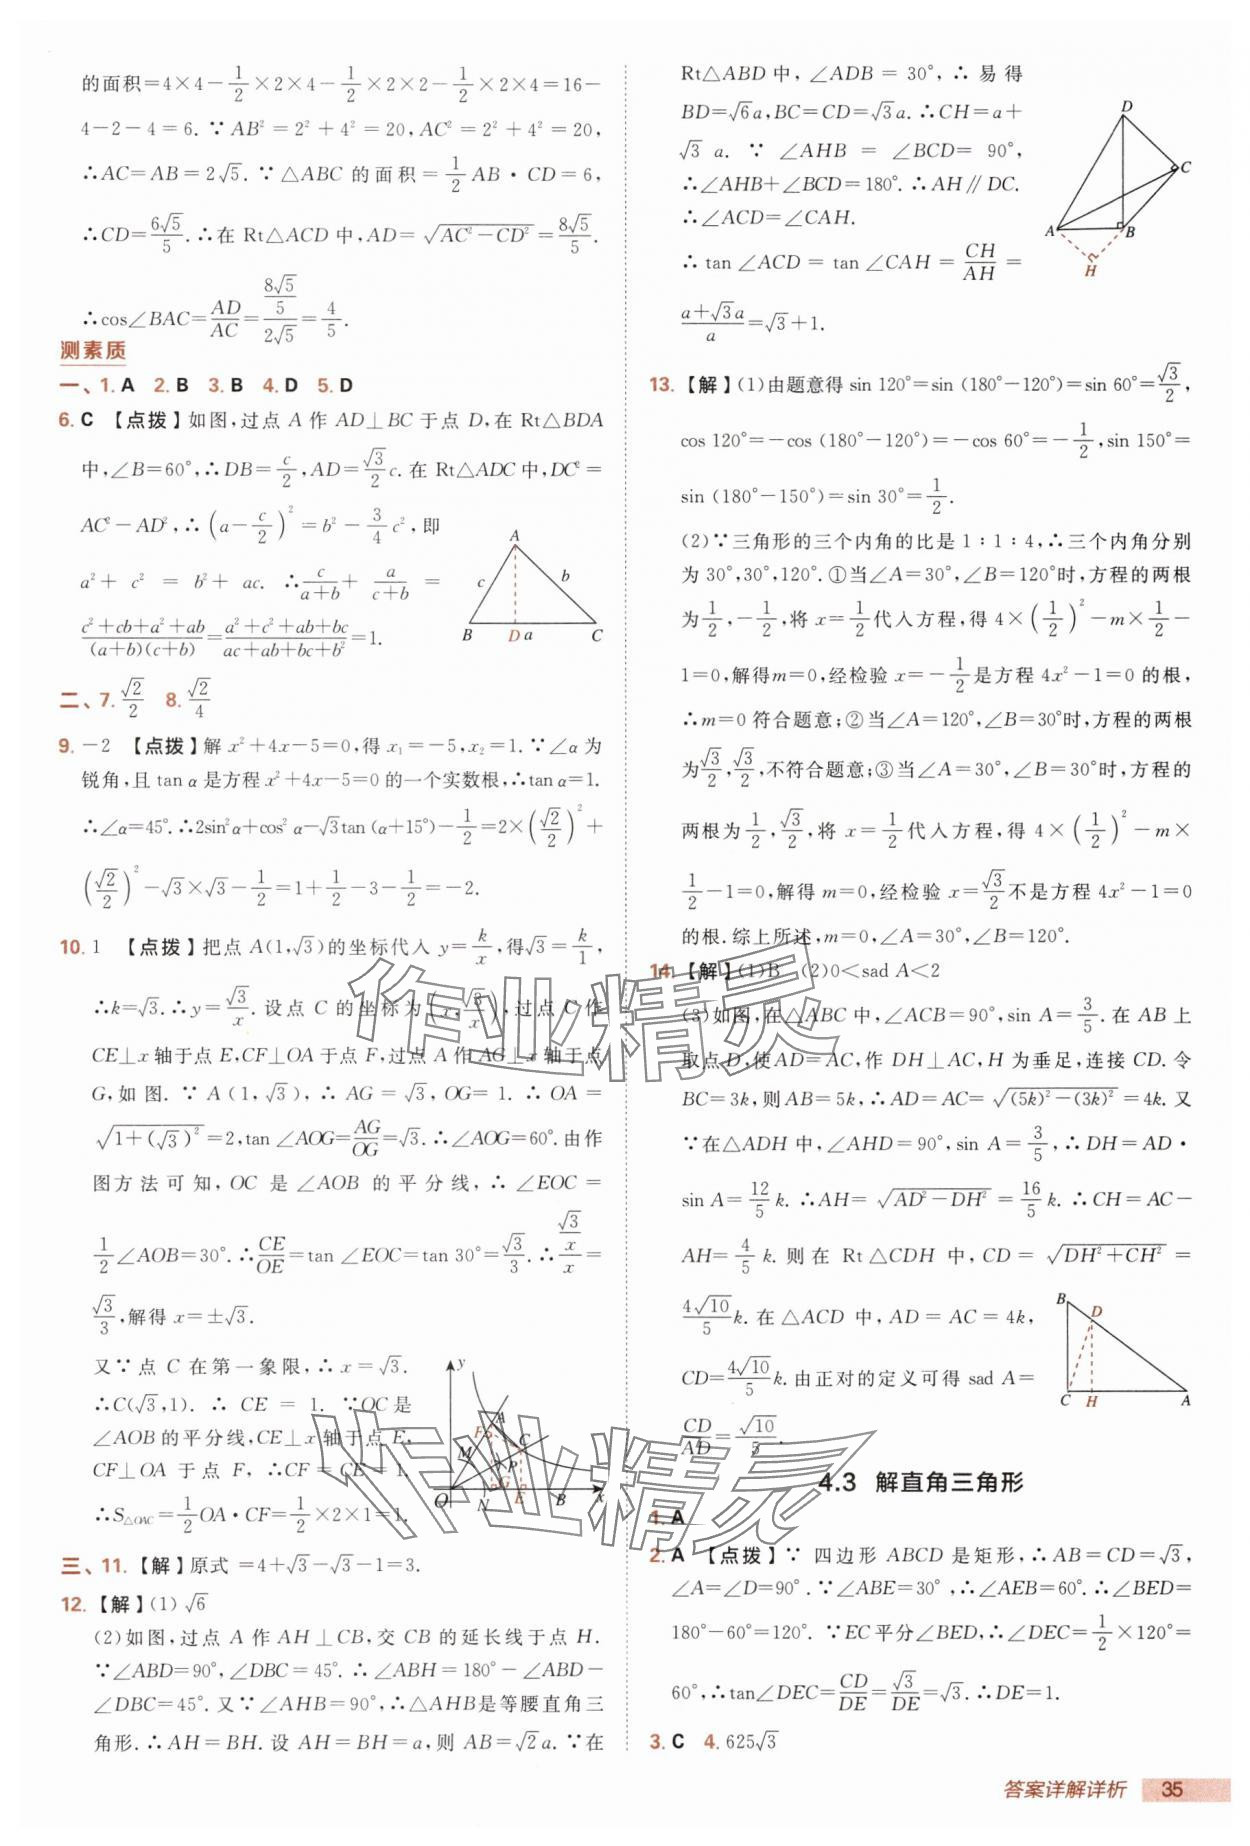 的面积=4×4-1/2×2×4-1/2×2×2-1/2×2×4=16-
4-2-4=6. ∵AB²=2²+4²=20,AC²=2²+4²=20,
∴AC=AB=2√5. ∵△ABC 的面积=1/2 AB·CD=6,
∴CD=6√5/5. ∴在 Rt△ACD 中,AD=√(AC²-CD²)=8√5/5.
∴cos∠BAC=AD/AC=(8√5/5)/(2√5)=4/5.
测素质
一、1. A 2. B 3. B 4. D 5. D
6. C 【点拨】如图,过点 A 作 AD⊥BC 于点 D,在 Rt△BDA
中,∠B=60°,∴DB=c/2,AD=√3/2 c. 在 Rt△ADC 中,DC²=
AC²-AD²,∴(a-c/2)²=b²-3/4 c²,即
a²+c²=b²+ac. ∴c/(a+b)+a/(c+b)=
(c²+cb+a²+ab)/((a+b)(c+b))=(a²+c²+ab+bc)/(ac+ab+bc+b²)=1.
A
c
b
B
D
a
C
二、7. √2/2 8. √2/4
9. -2 【点拨】解 x²+4x-5=0,得 x₁=-5,x₂=1. ∵∠α 为
锐角,且 tan α 是方程 x²+4x-5=0 的一个实数根,∴tan α=1.
∴∠α=45°. ∴2sin²α+cos²α-√3tan(α+15°)-1/2=2×(√2/2)²+
(√2/2)²-√3×√3-1/2=1+1/2-3-1/2=-2.
10. 1 【点拨】把点 A(1,√3)的坐标代入 y=k/x,得√3=k/1,
∴k=√3. ∴y=√3/x. 设点 C 的坐标为(x,√3/x),过点 C 作
CE⊥x 轴于点 E,CF⊥OA 于点 F,过点 A 作 AG⊥x 轴于点
G,如图. ∵A(1,√3),∴AG=√3,OG=1. ∴OA=
√(1+(√3)²)=2,tan∠AOG=AG/OG=√3. ∴∠AOG=60°. 由作
图方法可知,OC 是∠AOB 的平分线,∴∠EOC=
1/2∠AOB=30°. ∴CE/OE=tan∠EOC=tan 30°=√3/3. ∴(√3/x)/x=
√3/3,解得 x=±√3.
又∵点 C 在第一象限,∴x=√3.
∴C(√3,1). ∴CE=1. ∵OC是
∠AOB的平分线,CE⊥x轴于点 E,
CF⊥OA 于点 F,∴CF=CE=1.
∴S△OAC=1/2 OA·CF=1/2×2×1=1.
y
A
F
C
M
P
O
N
G
E
B
x
三、11.【解】原式=4+√3-√3-1=3.
12.【解】(1)√6
(2)如图,过点 A 作 AH⊥CB,交 CB 的延长线于点 H.
∵∠ABD=90°,∠DBC=45°. ∴∠ABH=180°-∠ABD-
∠DBC=45°. 又∵∠AHB=90°,∴△AHB是等腰直角三
角形. ∴AH=BH. 设 AH=BH=a,则 AB=√2a. ∵在
Rt△ABD 中,∠ADB=30°,∴易得
BD=√6a,BC=CD=√3a. ∴CH=a+
√3 a. ∵∠AHB=∠BCD=90°,
∴∠AHB+∠BCD=180°. ∴AH∥DC.
∴∠ACD=∠CAH.
∴tan∠ACD=tan∠CAH=CH/AH=
(a+√3a)/a=√3+1.
D
C
A
B
H
13.【解】(1)由题意得 sin 120°=sin (180°-120°)=sin 60°=√3/2,
cos 120°=-cos (180°-120°)=-cos 60°=-1/2,sin 150°=
sin (180°-150°)=sin 30°=1/2.
(2)∵三角形的三个内角的比是 1∶1∶4,∴三个内角分别
为 30°,30°,120°. ①当∠A=30°,∠B=120°时,方程的两根
为1/2,-1/2,将 x=1/2代入方程,得 4×(1/2)²-m×1/2-
1=0,解得m=0,经检验 x=-1/2是方程 4x²-1=0 的根,
∴m=0 符合题意;②当∠A=120°,∠B=30°时,方程的两根
为√3/2,√3/2,不符合题意;③当∠A=30°,∠B=30°时,方程的
两根为1/2,√3/2,将 x=1/2代入方程,得 4×(1/2)²-m×
1/2-1=0,解得 m=0,经检验 x=√3/2不是方程 4x²-1=0
的根. 综上所述,m=0,∠A=30°,∠B=120°.
14.【解】(1)B (2)0<sad A<2
(3)如图,在△ABC 中,∠ACB=90°,sin A=3/5. 在 AB 上
取点 D,使AD=AC,作 DH⊥AC,H 为垂足,连接 CD. 令
BC=3k,则AB=5k,∴AD=AC=√((5k)²-(3k)²)=4k. 又
∵在△ADH 中,∠AHD=90°,sin A=3/5,∴DH=AD·
sin A=12/5 k. ∴AH=√(AD²-DH²)=16/5 k. ∴CH=AC-
AH=4/5 k. 则在 Rt△CDH 中,CD=√(DH²+CH²)=
4√10/5 k. 在△ACD 中,AD=AC=4k,
CD=4√10/5 k. 由正对的定义可得 sad A=
CD/AD=√10/5.
B
D
C
H
A
4.3 解直角三角形
1. A
2. A 【点拨】∵四边形 ABCD 是矩形,∴AB=CD=√3,
∠A=∠D=90°. ∵∠ABE=30°,∴∠AEB=60°. ∴∠BED=
180°-60°=120°. ∵EC平分∠BED,∴∠DEC=1/2×120°=
60°,∴tan∠DEC=CD/DE=√3/DE=√3. ∴DE=1.
3. C 4. 625√3
答案详解详析 35
作业精灵
作业精灵